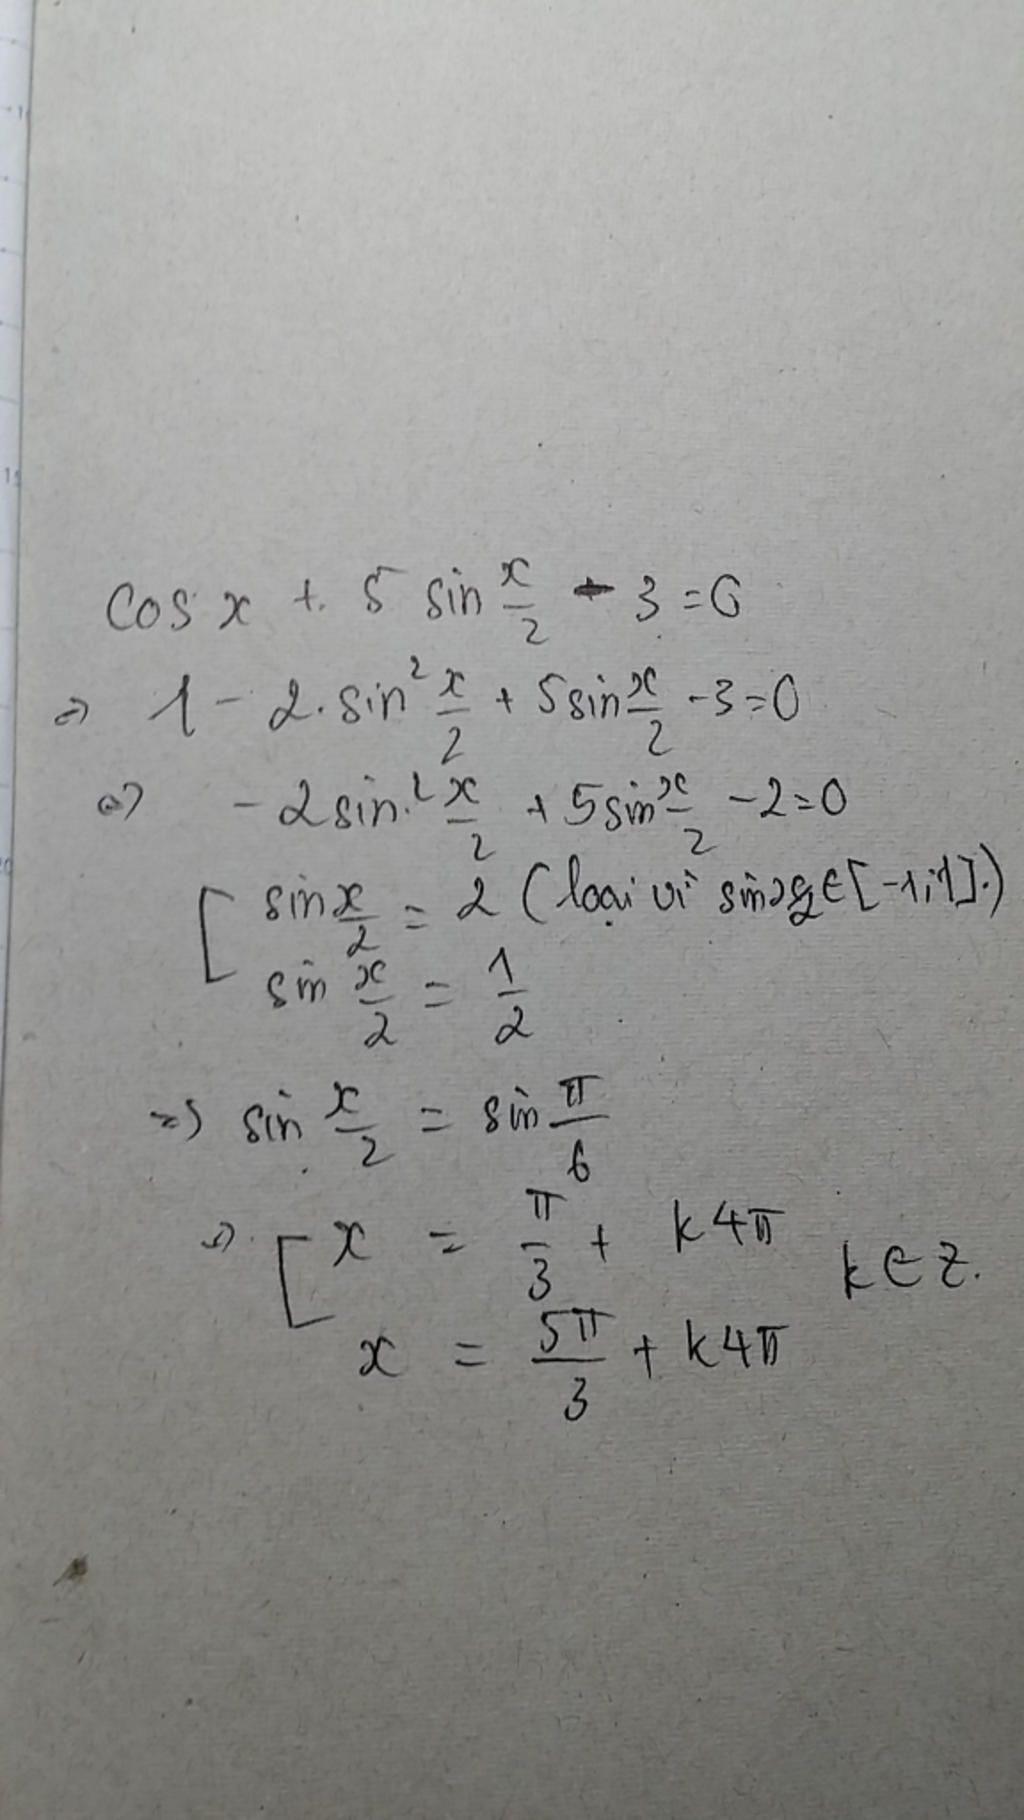 cos x + 5 sin x/2 - 3 = 0
⇒ 1 - 2.sin² x/2 + 5 sin x/2 - 3 = 0
⇔ - 2 sin² x/2 + 5 sin x/2 - 2 = 0
[ sin x/2 = 2 ( loại vì sin x/2 ∈ [-1;1].)
sin x/2 = 1/2
⇒ sin x/2 = sin π/6
⇒ [ x = π/3 + k4π
k ∈ Z.
x = 5π/3 + k4π